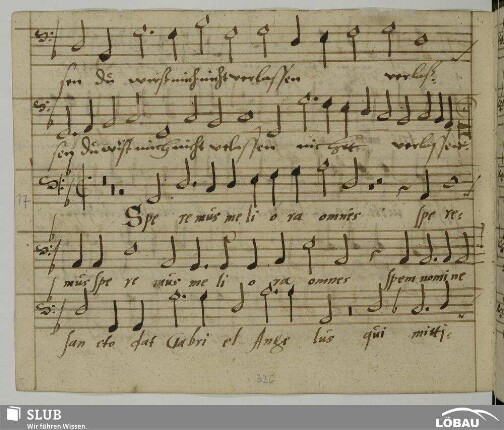 sen du wirst mich nicht verlassen verlass:
sen du wirst mich nicht verlassen nicht verlassen.
17
Spe remus meli o ra omnes spe re:
mus spe re mus me li o ra omnes spem nomine
san cto dat Gabri el Ange lus qui mitti:
326
SLUB
Wir führen Wissen.
LÖBAU